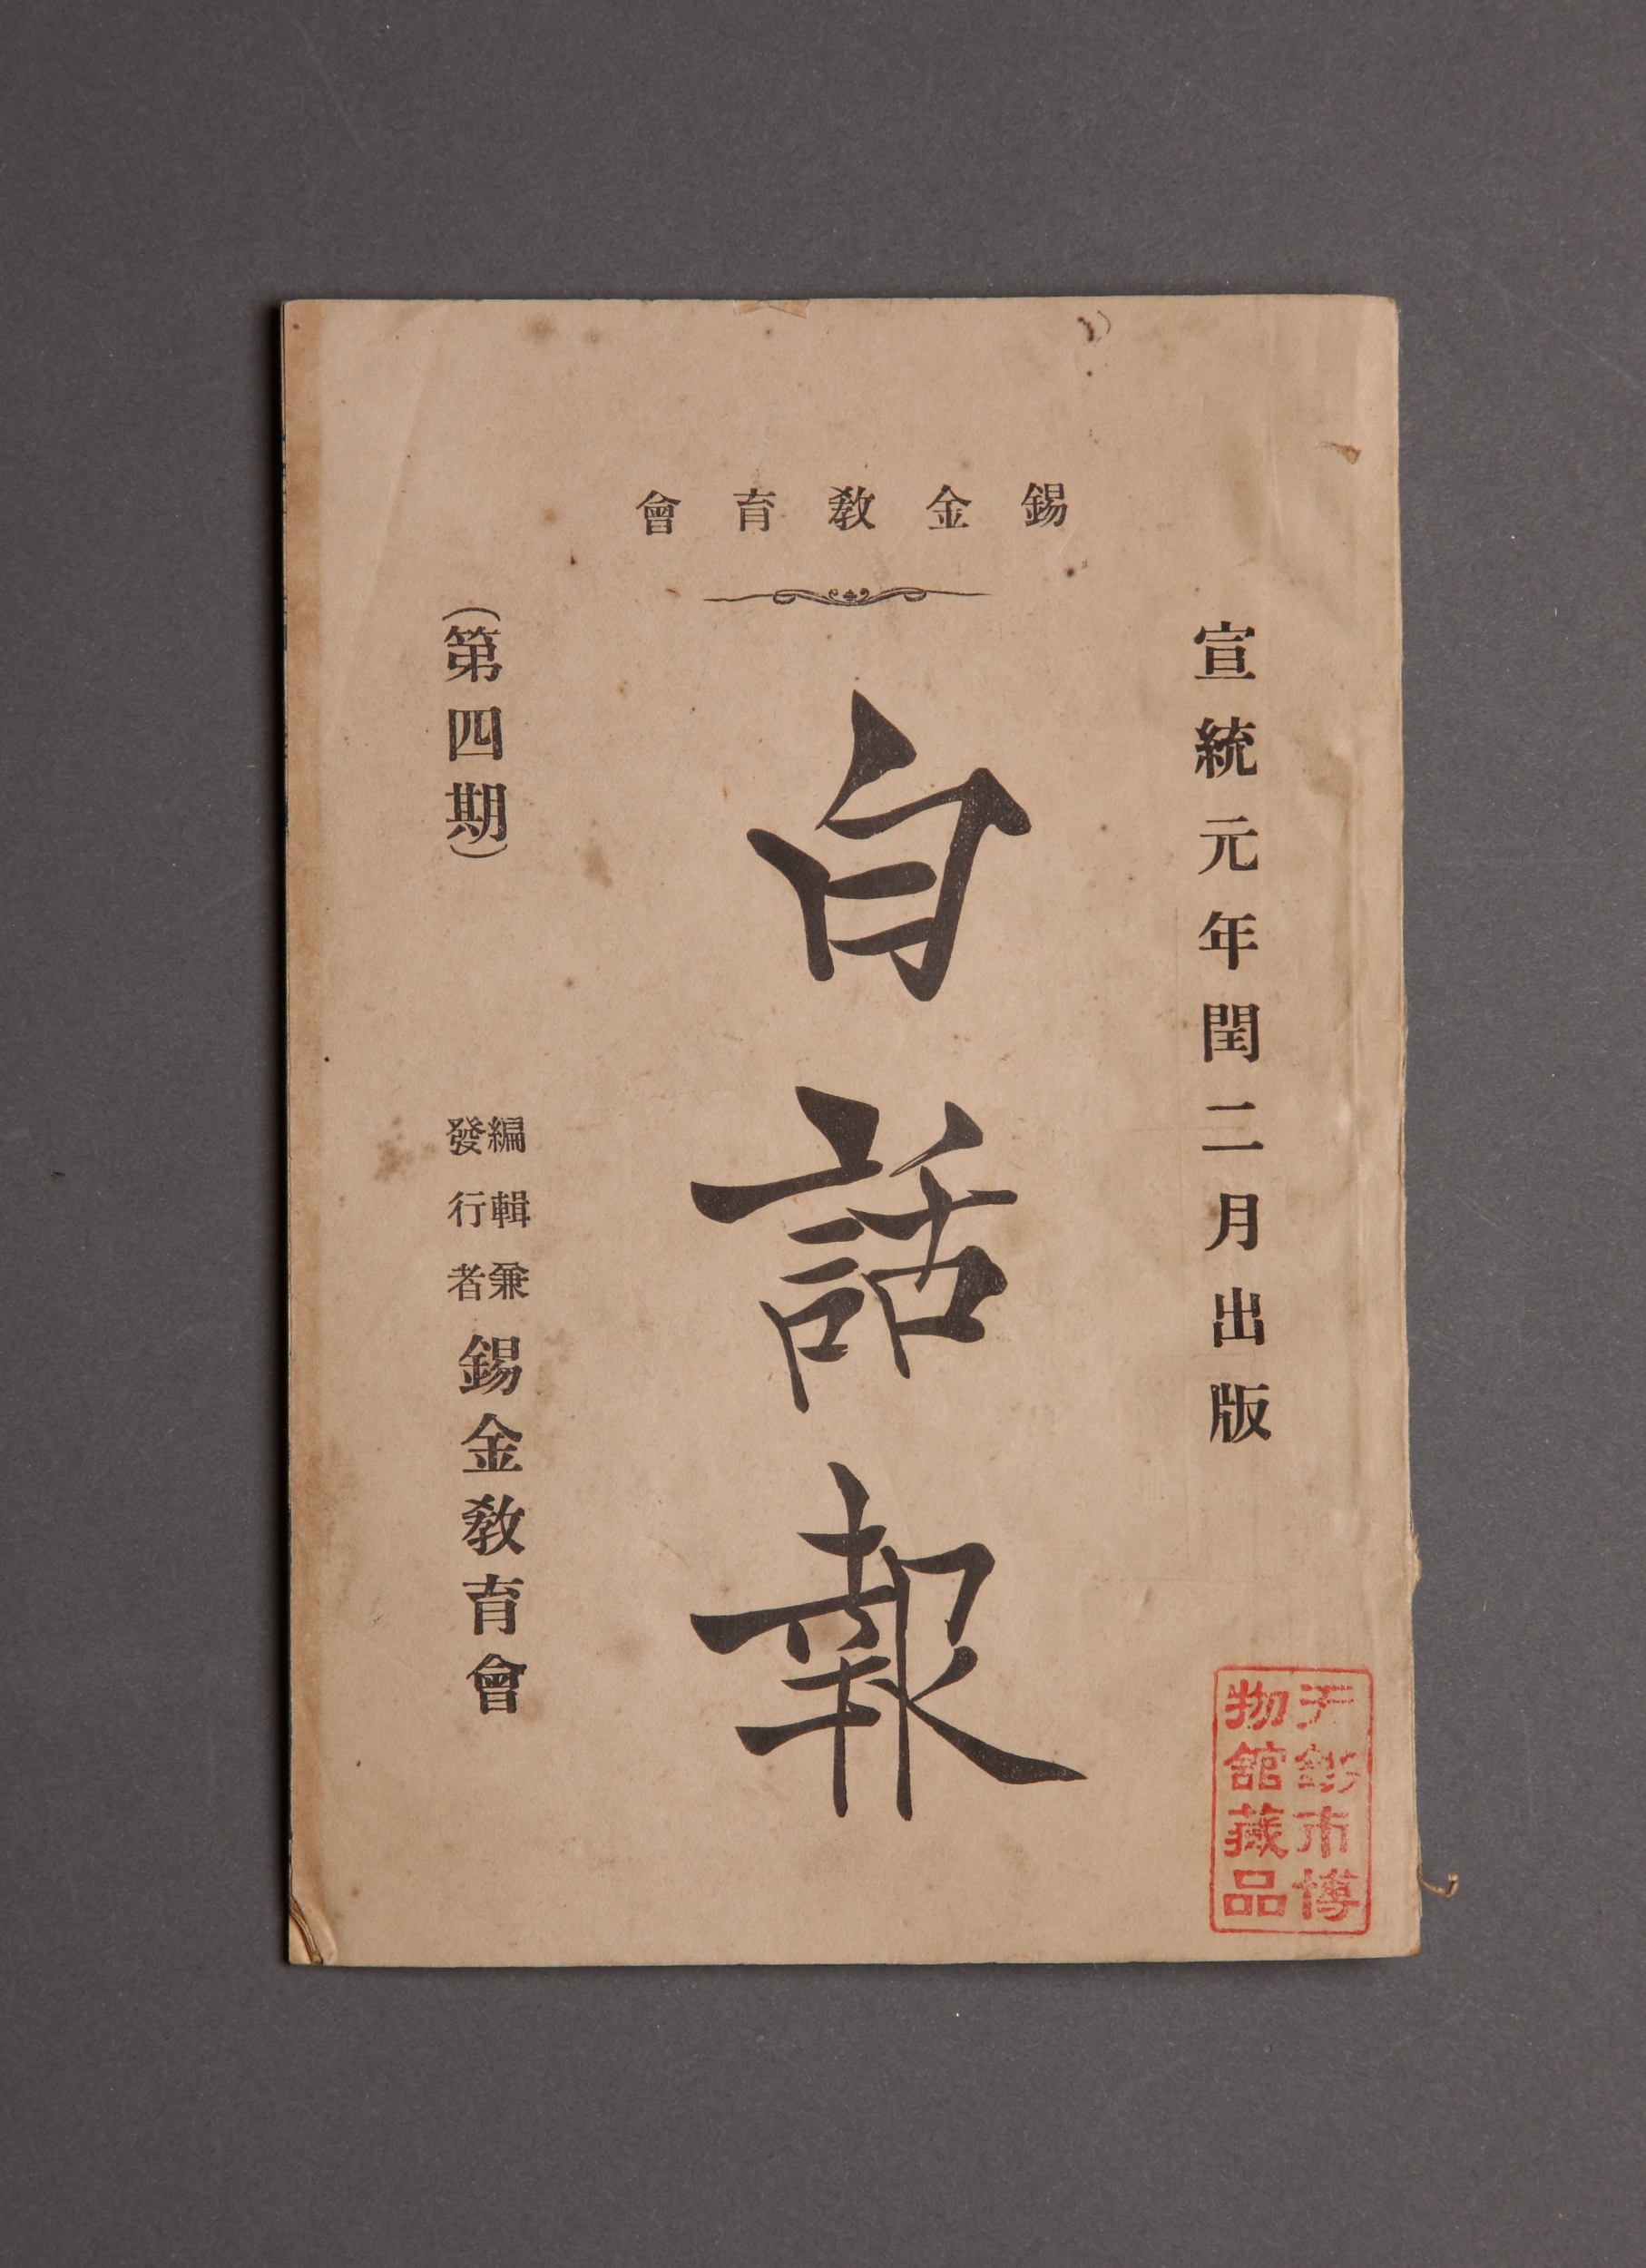 錫金教育會
宣統元年閏二月出版
白話報
(第四期)
編輯兼
發行者
錫金教育會
无錫市博
物館藏品